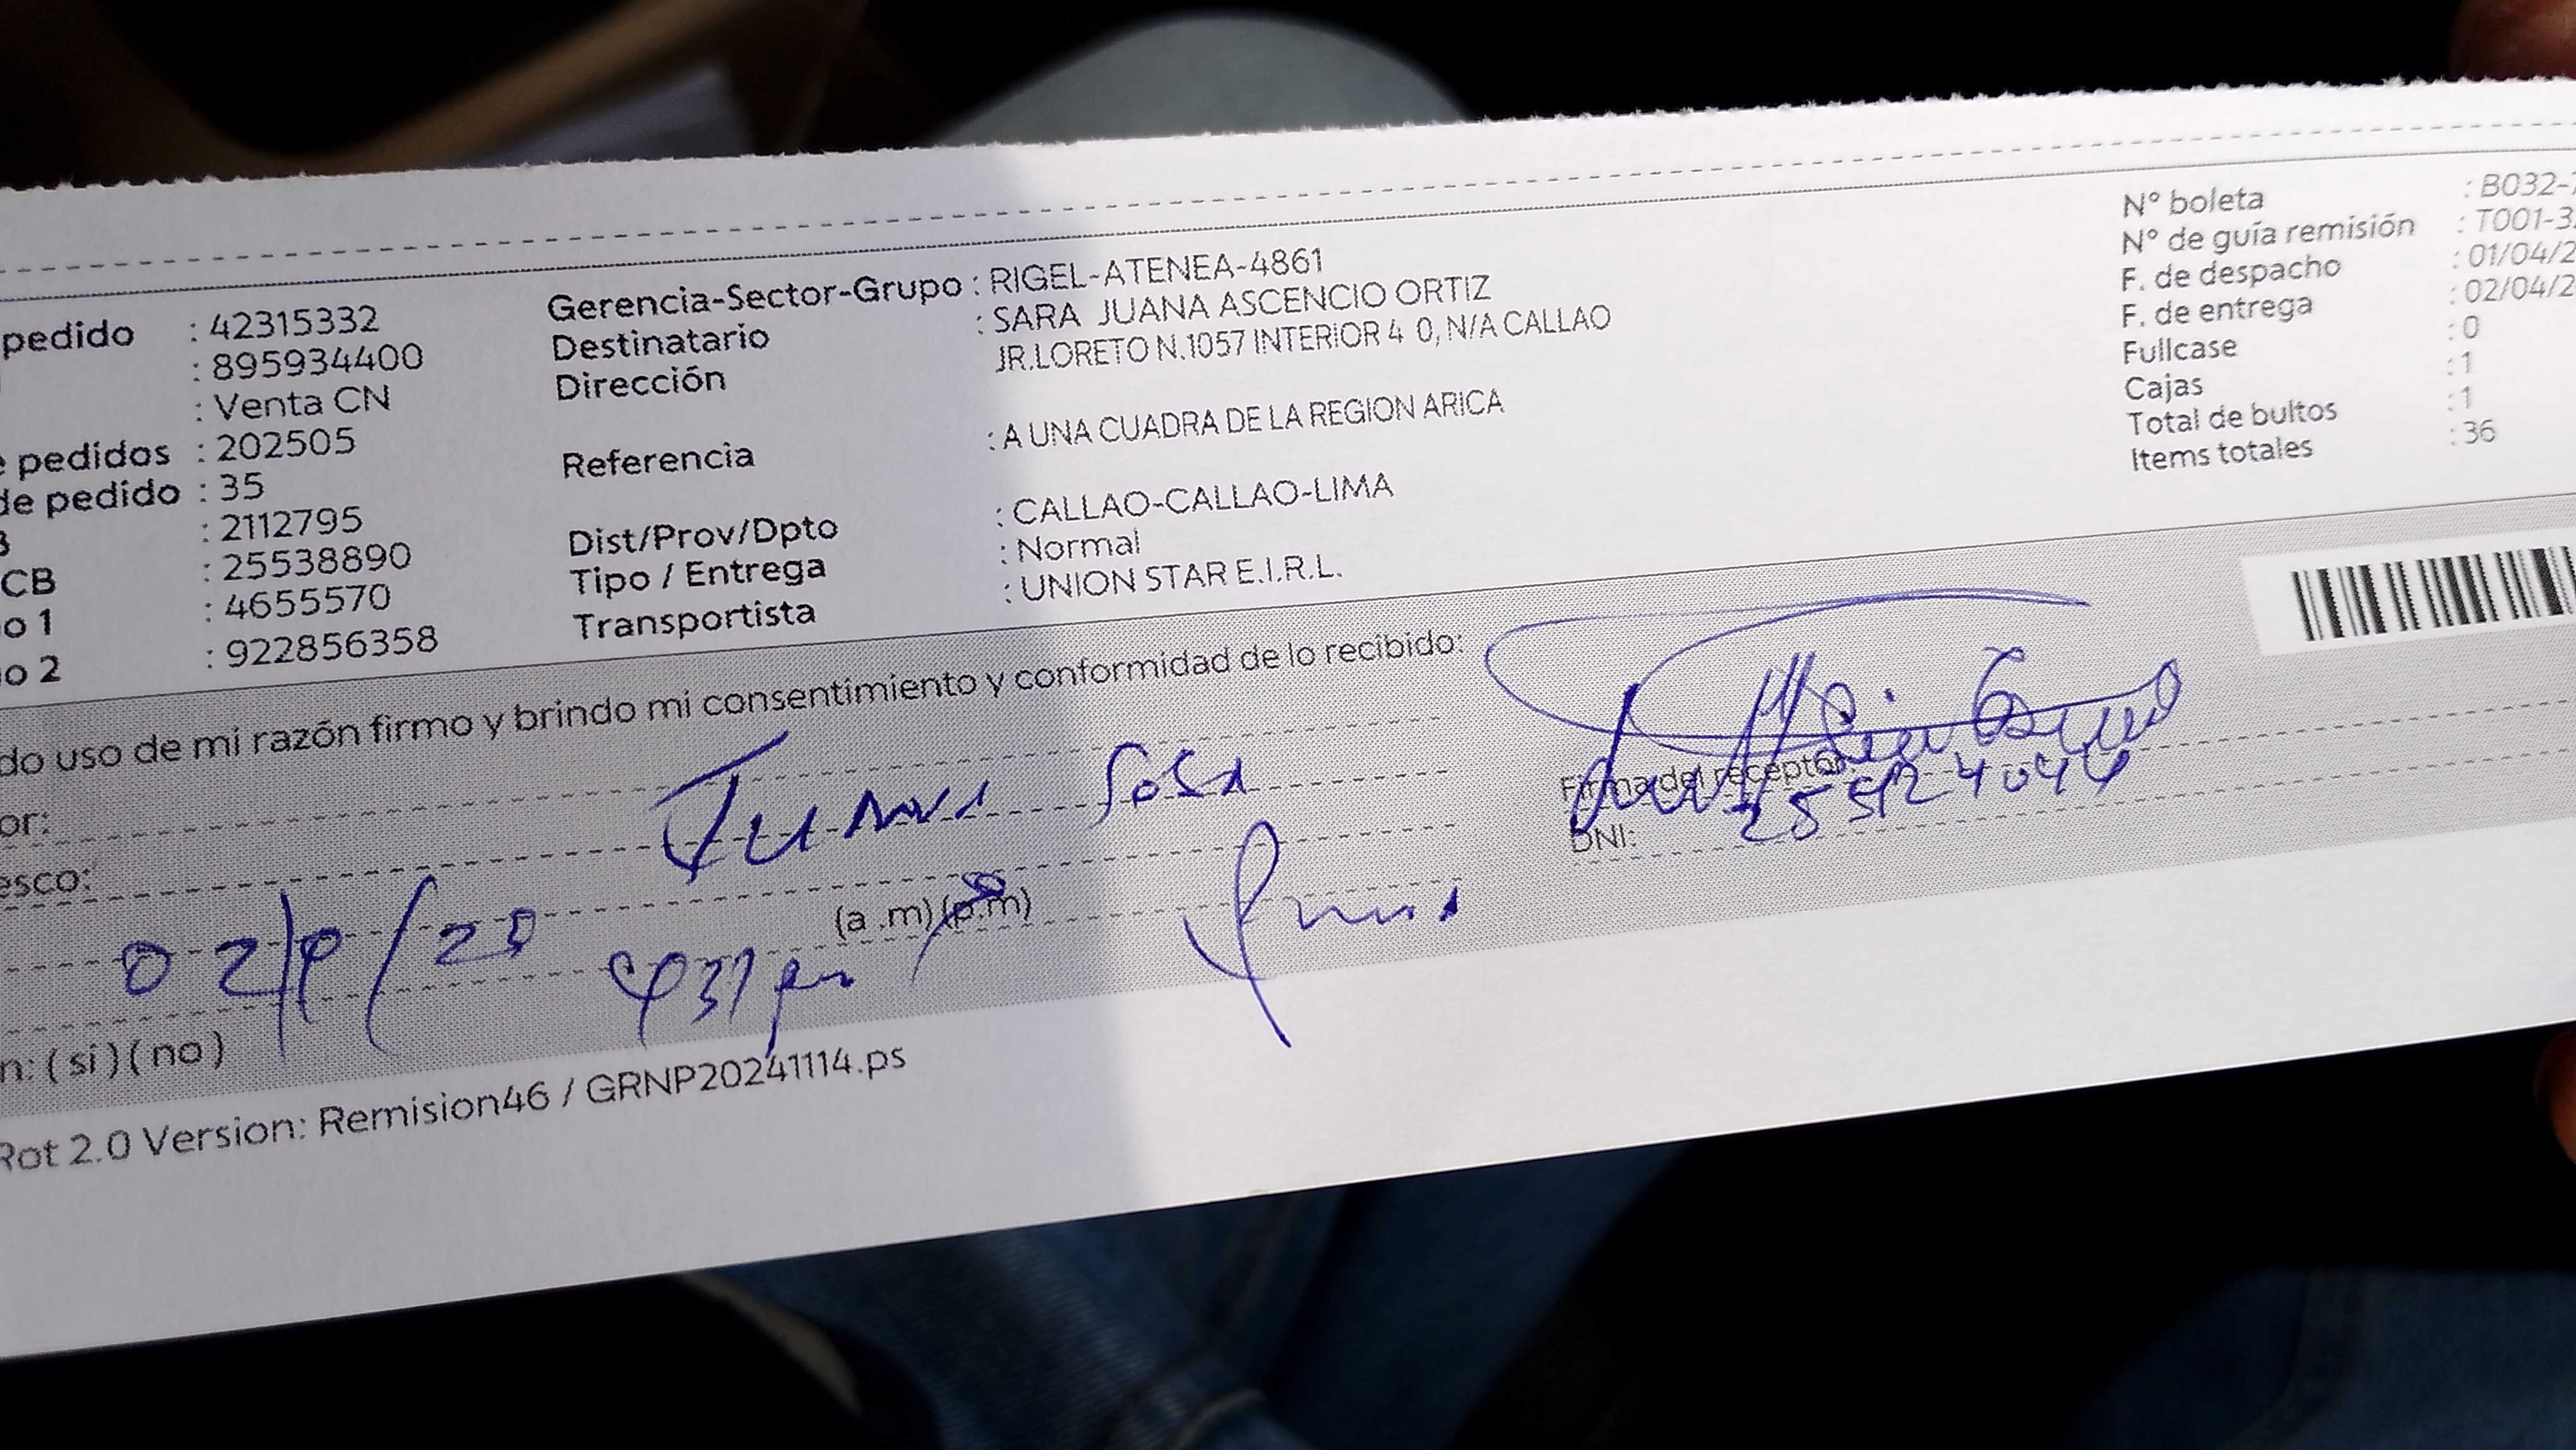 pedido : 42315332
: 895934400
: Venta CN
pedidos : 202505
de pedido : 35
: 2112795
CB : 25538890
o 1 : 4655570
o 2 : 922856358
Gerencia-Sector-Grupo : RIGEL-ATENEA-4861
Destinatario : SARA JUANA ASCENCIO ORTIZ
Dirección JR.LORETO N.1057 INTERIOR 4 0, N/A CALLAO
Referencia : A UNA CUADRA DE LA REGION ARICA
Dist/Prov/Dpto : CALLAO-CALLAO-LIMA
Tipo / Entrega : Normal
Transportista : UNION STAR E.I.R.L.
N° boleta : B032-
N° de guía remisión : T001-3
F. de despacho : 01/04/2
F. de entrega : 02/04/2
Fullcase : 0
Cajas : 1
Total de bultos : 1
Items totales : 36
do uso de mi razón firmo y brindo mi consentimiento y conformidad de lo recibido:
or: Sosa
esco:
Firma del receptor:
DNI:
(a .m) (p.m)
n: ( si ) ( no )
Rot 2.0 Version: Remision46 / GRNP20241114.ps